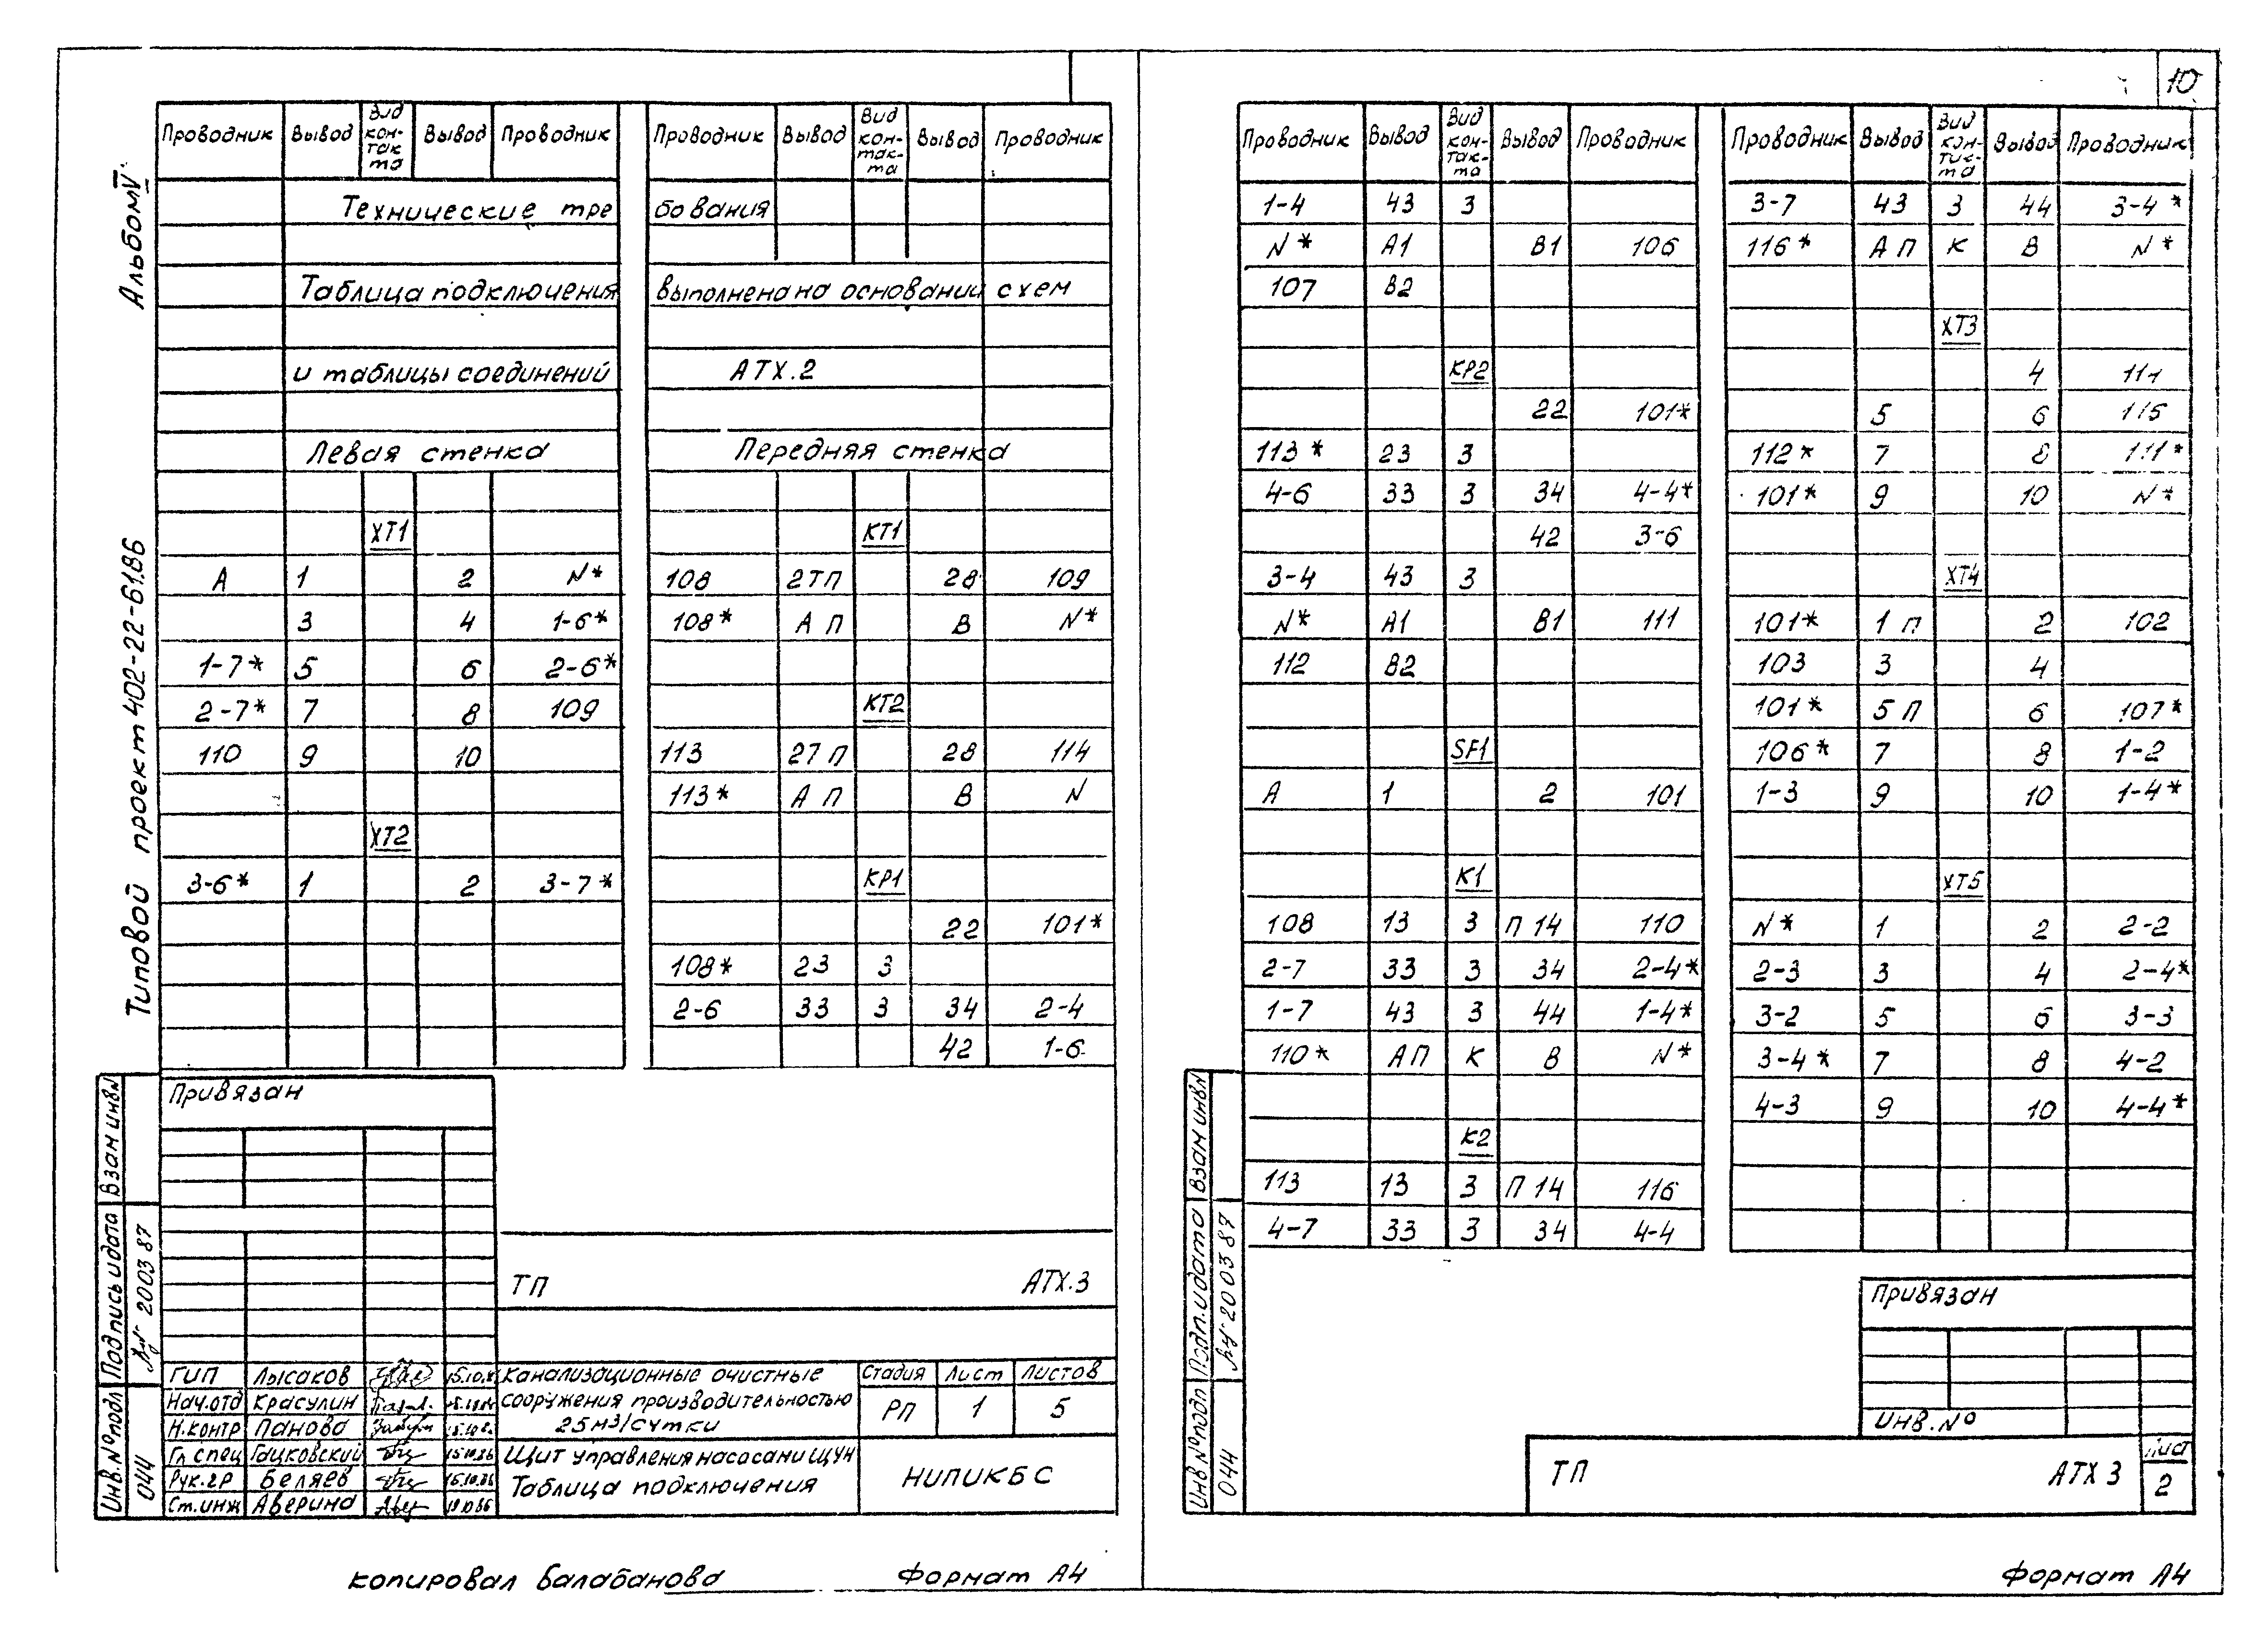 10
Альбом V
Типовой проект 402-22-61.86
Проводник Вывод Вид контакта Вывод Проводник
Технические тре
Таблица подключения
и таблицы соединений
Левая стенка
ХТ1
А 1 2 N*
3 4 1-6*
1-7* 5 6 2-6*
2-7* 7 8 109
110 9 10
ХТ2
3-6* 1 2 3-7*
Проводник Вывод Вид контакта Вывод Проводник
бования
выполнена на основании схем
АТХ.2
Передняя стенка
КТ1
108 2ТП 28 109
108* А П В N*
КТ2
113 27 П 28 114
113* А П В N
КР1
22 101*
108* 23 3
2-6 33 3 34 2-4
42 1-6
Привязан
ТП АТХ.3
ГИП Лысаков
Нач.отд Красулин
Н.контр Панова
Гл спец Гацковский 15.10.86
Рук.гр Беляев 15.10.86
Ст.инж Аверина
Канализационные очистные
сооружения производительностью
25 м³/сутки
Щит управления насосани ЩУН
Таблица подключения
Стадия Лист Листов
РП 1 5
НИПИКБС
Взам инв N
Подпись и дата
20 03 87
Инв.№ подл
044
копировал Балабанова Формат А4
Проводник Вывод Вид контакта Вывод Проводник
1-4 43 3
N* А1 В1 106
107 В2
КР2
22 101*
113* 23 3
4-6 33 3 34 4-4*
42 3-6
3-4 43 3
N* А1 В1 111
112 В2
SF1
А 1 2 101
К1
108 13 3 П 14 110
2-7 33 3 34 2-4*
1-7 43 3 44 1-4*
110* А П К В N*
К2
113 13 3 П 14 116
4-7 33 3 34 4-4
Проводник Вывод Вид контакта Вывод Проводник
3-7 43 3 44 3-4*
116* А П К В N*
ХТ3
4
5 6 115
112* 7 8 111*
101* 9 10 N*
ХТ4
101* 1 П 2 102
103 3 4
101* 5 П 6 107*
106* 7 8 1-2
1-3 9 10 1-4*
ХТ5
N* 1 2 2-2
2-3 3 4 2-4*
3-2 5 6 3-3
3-4* 7 8 4-2
4-3 9 10 4-4*
Привязан
Инв.№
ТП АТХ 3
Лист
2
Взам инв N
Подп. и дата
20 03 87
Инв № подл
044
Формат А4